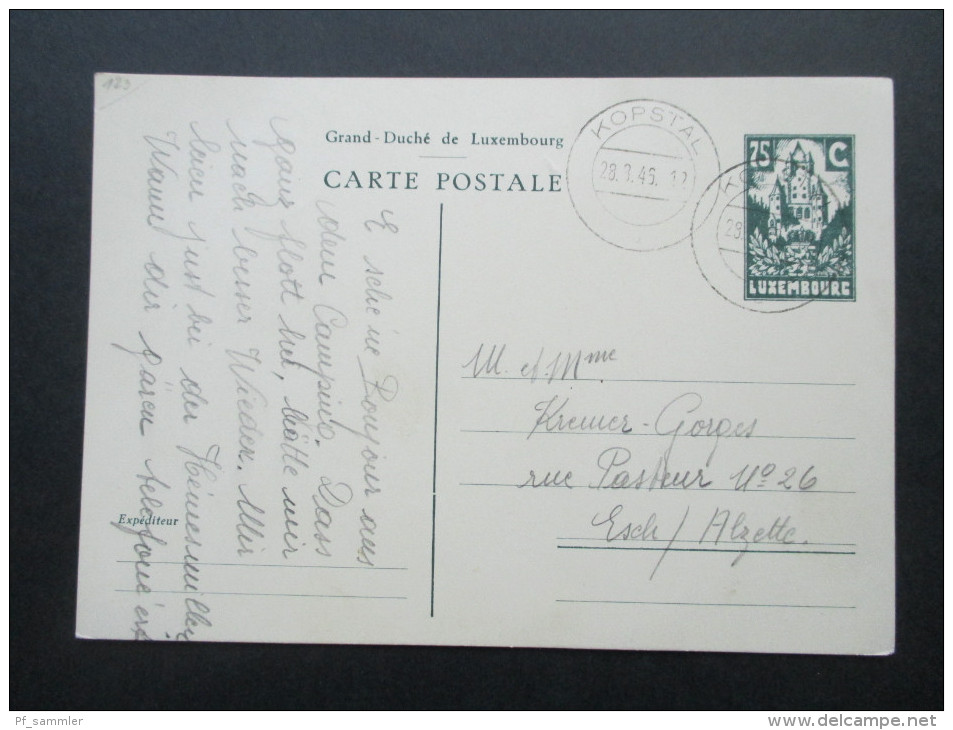 123
Grand-Duché de Luxembourg
CARTE POSTALE
KOPSTAL
28.7.46. 12
28.
75 C
LUXEMBOURG
E schéine Bonjour aus
dem Camping. Dass
ganz flott hei, hätte mir
nach besser Wieder. Mir
leien just bei der
Wann dir gären
M. et Mme
Kremer-Gorges
rue Pasteur No 26
Esch/Alzette.
Expéditeur
Pf_sammler
www.delcampe.net